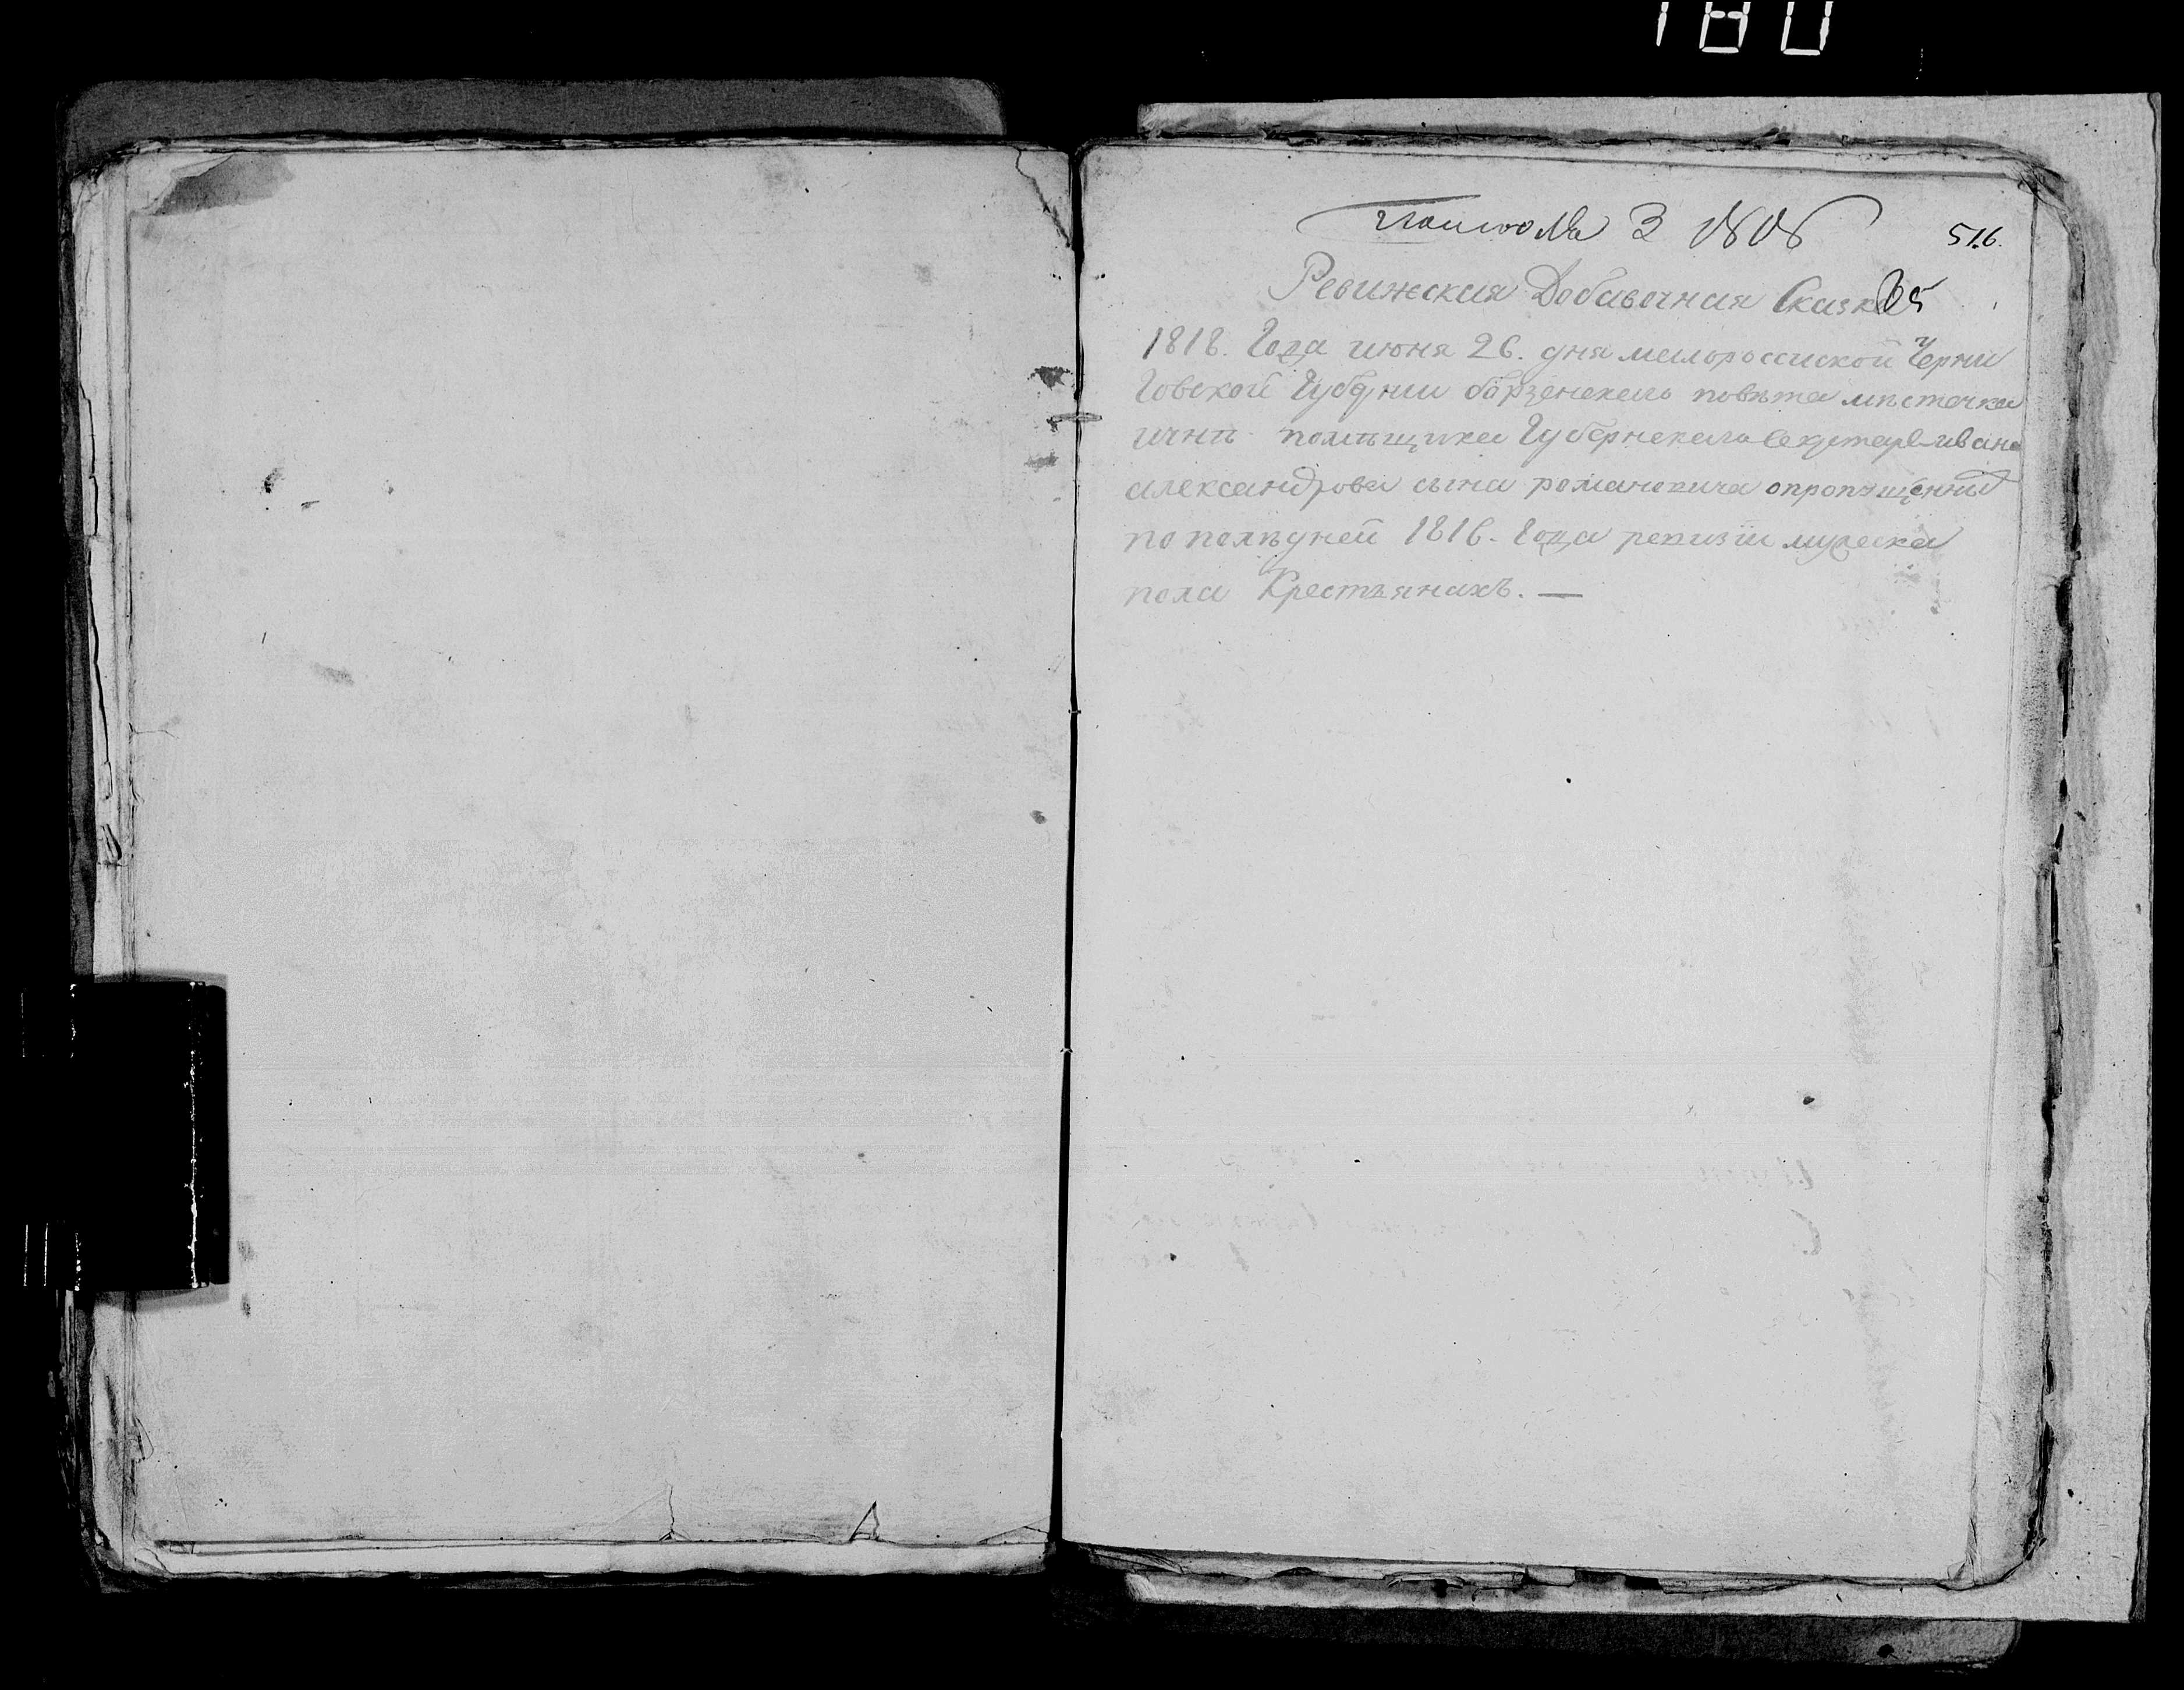 180
3 1818
516.
Ревижская Добавочная Сказка 35
1818. Года июня 26. дня малороссиской Черни
говской Губернии борзенскаго повѣта мѣстечка
ичнѣ помѣщика Губернскаго Секретаря ивана
александрова сына романовича опропущенных
по полѣдней 1816. Года ревизіи мужеска
пола Крестьянахъ. —